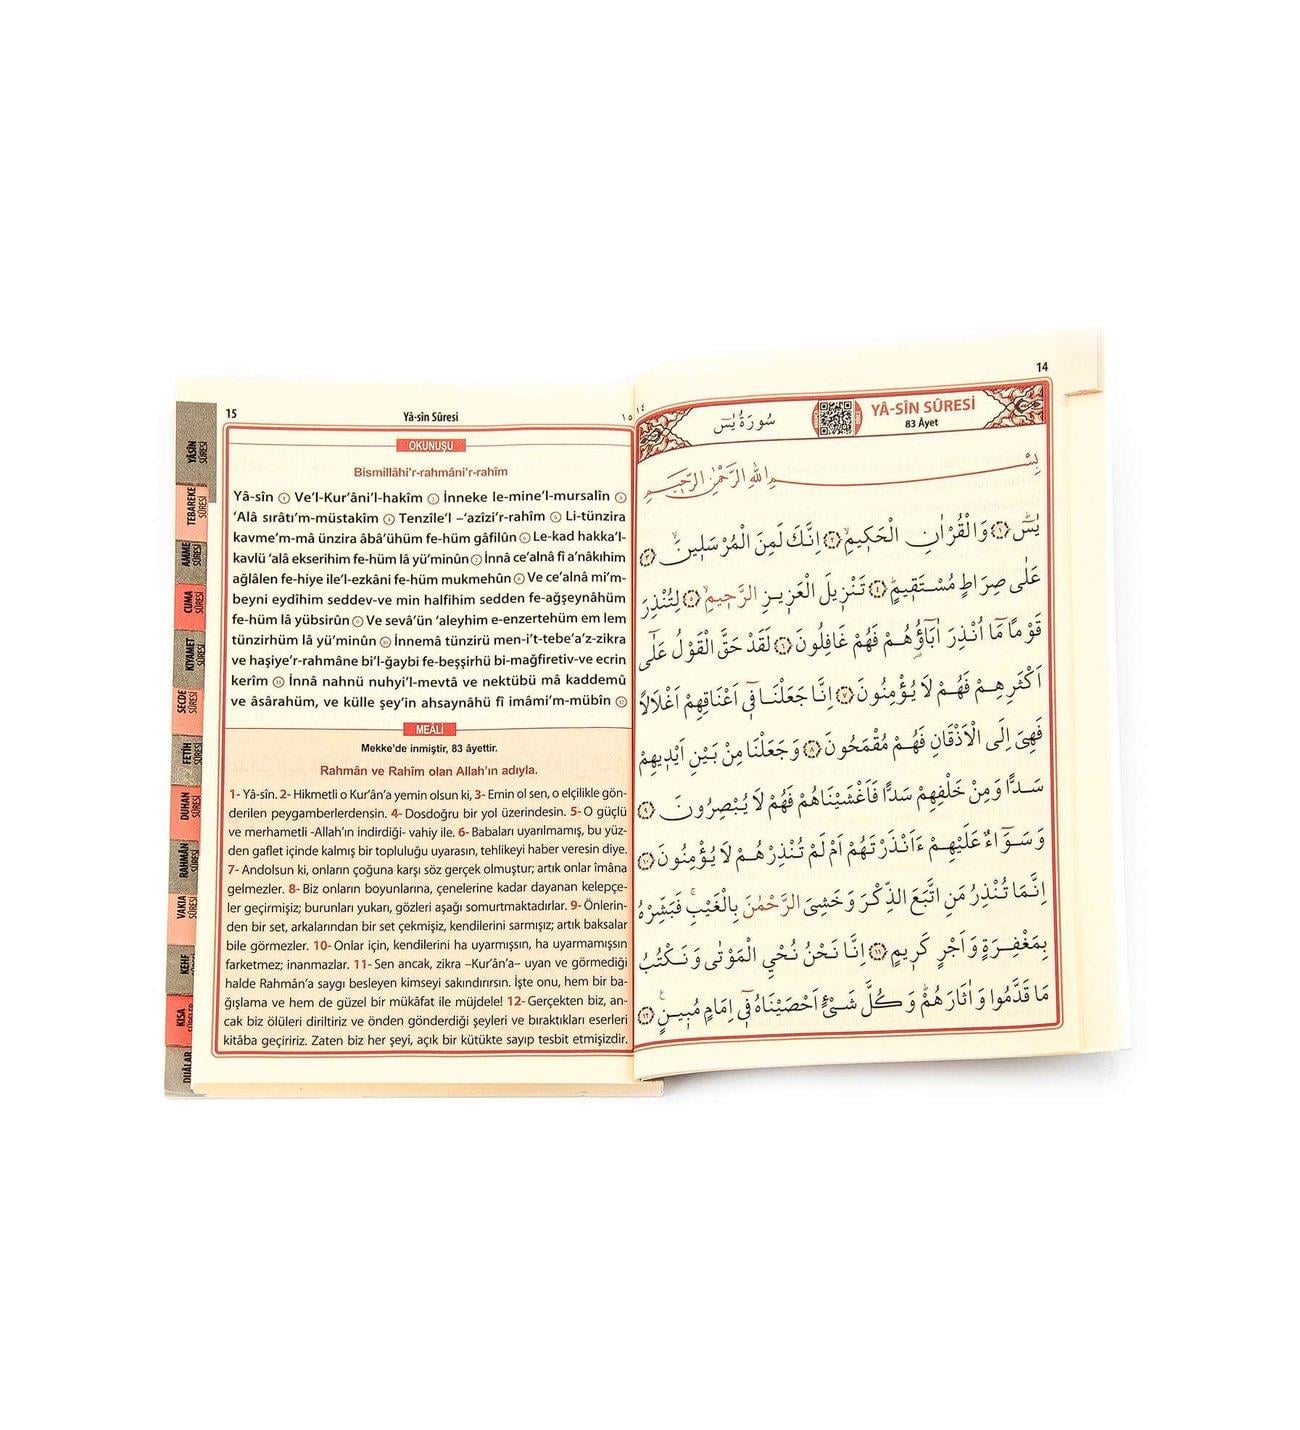 14
١٤
سُورَةُ يٰسٓ
YÂ-SÎN SÛRESİ
83 Âyet
بِسْمِ اللّٰهِ الرَّحْمٰنِ الرَّح۪يمِ
يٰسٓ ﴿١﴾ وَالْقُرْاٰنِ الْحَك۪يمِۙ ﴿٢﴾ اِنَّكَ لَمِنَ الْمُرْسَل۪ينَۙ ﴿٣﴾
عَلٰى صِرَاطٍ مُسْتَق۪يمٍۜ ﴿٤﴾ تَنْز۪يلَ الْعَز۪يزِ الرَّح۪يمِۙ ﴿٥﴾ لِتُنْذِرَ
قَوْمًا مَٓا اُنْذِرَ اٰبَٓاؤُ۬هُمْ فَهُمْ غَافِلُونَ ﴿٦﴾ لَقَدْ حَقَّ الْقَوْلُ عَلٰٓى
اَكْثَرِهِمْ فَهُمْ لَا يُؤْمِنُونَ ﴿٧﴾ اِنَّا جَعَلْنَا ف۪ٓي اَعْنَاقِهِمْ اَغْلَالًا
فَهِيَ اِلَى الْاَذْقَانِ فَهُمْ مُقْمَحُونَ ﴿٨﴾ وَجَعَلْنَا مِنْ بَيْنِ اَيْد۪يهِمْ
سَدًّا وَمِنْ خَلْفِهِمْ سَدًّا فَاَغْشَيْنَاهُمْ فَهُمْ لَا يُبْصِرُونَ ﴿٩﴾
وَسَوَٓاءٌ عَلَيْهِمْ ءَاَنْذَرْتَهُمْ اَمْ لَمْ تُنْذِرْهُمْ لَا يُؤْمِنُونَ ﴿١٠﴾
اِنَّمَا تُنْذِرُ مَنِ اتَّبَعَ الذِّكْرَ وَخَشِيَ الرَّحْمٰنَ بِالْغَيْبِۚ فَبَشِّرْهُ
بِمَغْفِرَةٍ وَاَجْرٍ كَر۪يمٍ ﴿١١﴾ اِنَّا نَحْنُ نُحْيِ الْمَوْتٰى وَنَكْتُبُ
مَا قَدَّمُوا وَاٰثَارَهُمْۜ وَكُلَّ شَيْءٍ اَحْصَيْنَاهُ ف۪ٓي اِمَامٍ مُب۪ينٍ۟ ﴿١٢﴾
15
Yâ-sîn Sûresi
١٥
OKUNUŞU
Bismillâhi’r-rahmâni’r-rahîm
Yâ-sîn ① Ve’l-Kur’âni’l-hakîm ② İnneke le-mine’l-mursalîn ③
‘Alâ sırâtı’m-müstakîm ④ Tenzîle’l –‘azîzi’r-rahîm ⑤ Li-tünzira
kavme’m-mâ ünzira âbâ’ühüm fe-hüm gâfilûn ⑥ Le-kad hakka’l-
kavlü ‘alâ ekserihim fe-hüm lâ yü’minûn ⑦ İnnâ ce’alnâ fî a’nâkıhim
ağlâlen fe-hiye ile’l-ezkâni fe-hüm mukmehûn ⑧ Ve ce’alnâ mi’m-
beyni eydîhim seddev-ve min halfihim sedden fe-ağşeynâhüm
fe-hüm lâ yübsirûn ⑨ Ve sevâ’ün ‘aleyhim e-enzertehüm em lem
tünzirhüm lâ yü’minûn ⑩ İnnemâ tünzirü men-i’t-tebe’a’z-zikra
ve haşiye’r-rahmâne bi’l-ğaybi fe-beşşirhü bi-mağfiretiv-ve ecrin
kerîm ⑪ İnnâ nahnü nuhyi’l-mevtâ ve nektübü mâ kaddemû
ve âsârahüm, ve külle şey’in ahsaynâhü fî imâmi’m-mübîn ⑫
MEÂLİ
Mekke’de inmiştir, 83 âyettir.
Rahmân ve Rahîm olan Allah’ın adıyla.
1- Yâ-sîn. 2- Hikmetli o Kur’ân’a yemin olsun ki, 3- Emin ol sen, o elçilikle gön-
derilen peygamberlerdensin. 4- Dosdoğru bir yol üzerindesin. 5- O güçlü
ve merhametli -Allah’ın indirdiği- vahiy ile. 6- Babaları uyarılmamış, bu yüz-
den gaflet içinde kalmış bir topluluğu uyarasın, tehlikeyi haber veresin diye.
7- Andolsun ki, onların çoğuna karşı söz gerçek olmuştur; artık onlar îmâna
gelmezler. 8- Biz onların boyunlarına, çenelerine kadar dayanan kelepçe-
ler geçirmişiz; burunları yukarı, gözleri aşağı somurtmaktadırlar. 9- Önlerin-
den bir set, arkalarından bir set çekmişiz, kendilerini sarmışız; artık baksalar
bile görmezler. 10- Onlar için, kendilerini ha uyarmışsın, ha uyarmamışsın
farketmez; inanmazlar. 11- Sen ancak, zikra –Kur’ân’a– uyan ve görmediği
halde Rahmân’a saygı besleyen kimseyi sakındırırsın. İşte onu, hem bir ba-
ğışlama ve hem de güzel bir mükâfat ile müjdele! 12- Gerçekten biz, an-
cak biz ölüleri diriltiriz ve önden gönderdiği şeyleri ve bıraktıkları eserleri
kitâba geçiririz. Zaten biz her şeyi, açık bir kütükte sayıp tesbit etmişizdir.
YÂSÎN
SÛRESİ
TEBAREKE
SÛRESİ
AMME
SÛRESİ
CUMA
SÛRESİ
KIYAMET
SÛRESİ
SECDE
SÛRESİ
FETİH
SÛRESİ
DUHAN
SÛRESİ
RAHMÂN
SÛRESİ
VAKIA
SÛRESİ
KEHF
KISA
DUÂLAR